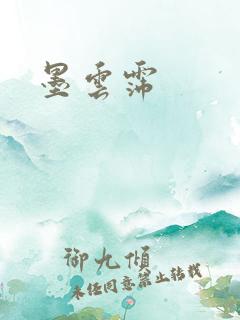 墨雲霈
御九傾
未經同意禁止轉載